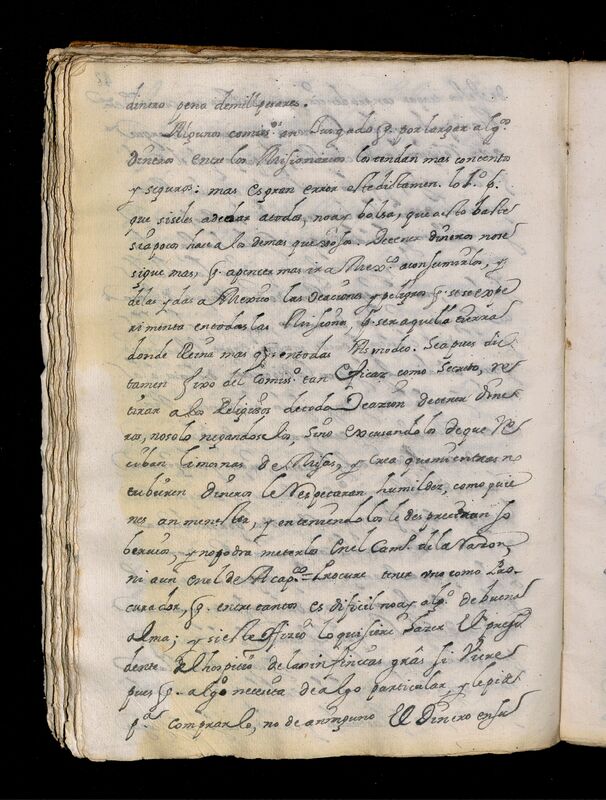 dinero pena demill perares.
Algunos comis.os an Jurgado, q. por largar alg.o
dineros entre los Misionarios los tendan mas contento
y seguros: mas es gran error este dictamen. lo 1.o p.
que si seles a de dar a todos, no ay bolsa, que a esto baste
sea poco hace a los demas que
sigue mas, q. apetecer mas ir a Mex.co a consumirlos, y
de las ydas a Mexico las ocaciones y peligros q. se se expe
rimenta en todas las Misiones, p. ser aquella tierra
donde Reina mas q. en todas Asmodeo. Sea pues dic
tamen fixo del Comiss.o tan eficaz como secreto, re
tirar a los Religiosos de toda ocazion de tener dine
ros, no solo negandoselos, sino excusandolos de que re
ciban limosnas de Misas, y crea que mientras no
tubieren dineros le respetaran humildes, como quie
nes an menester, y en teniendolos le despreciaran so
bervios, y no podra meterlos en el Cam.o de la razon,
ni aun en el de Acap.co = Procure tener uno como Pro
curador, q. entre tantos es dificil no ay alg.o de buena
alma; y si este officio lo quisiere hazer el Presi
dente del hospicio de la infinitas gras. si viere
pues q. alg.o necesita de algo particular, y le pide
p.a comprarlo, no de a ninguno el Dinero en su